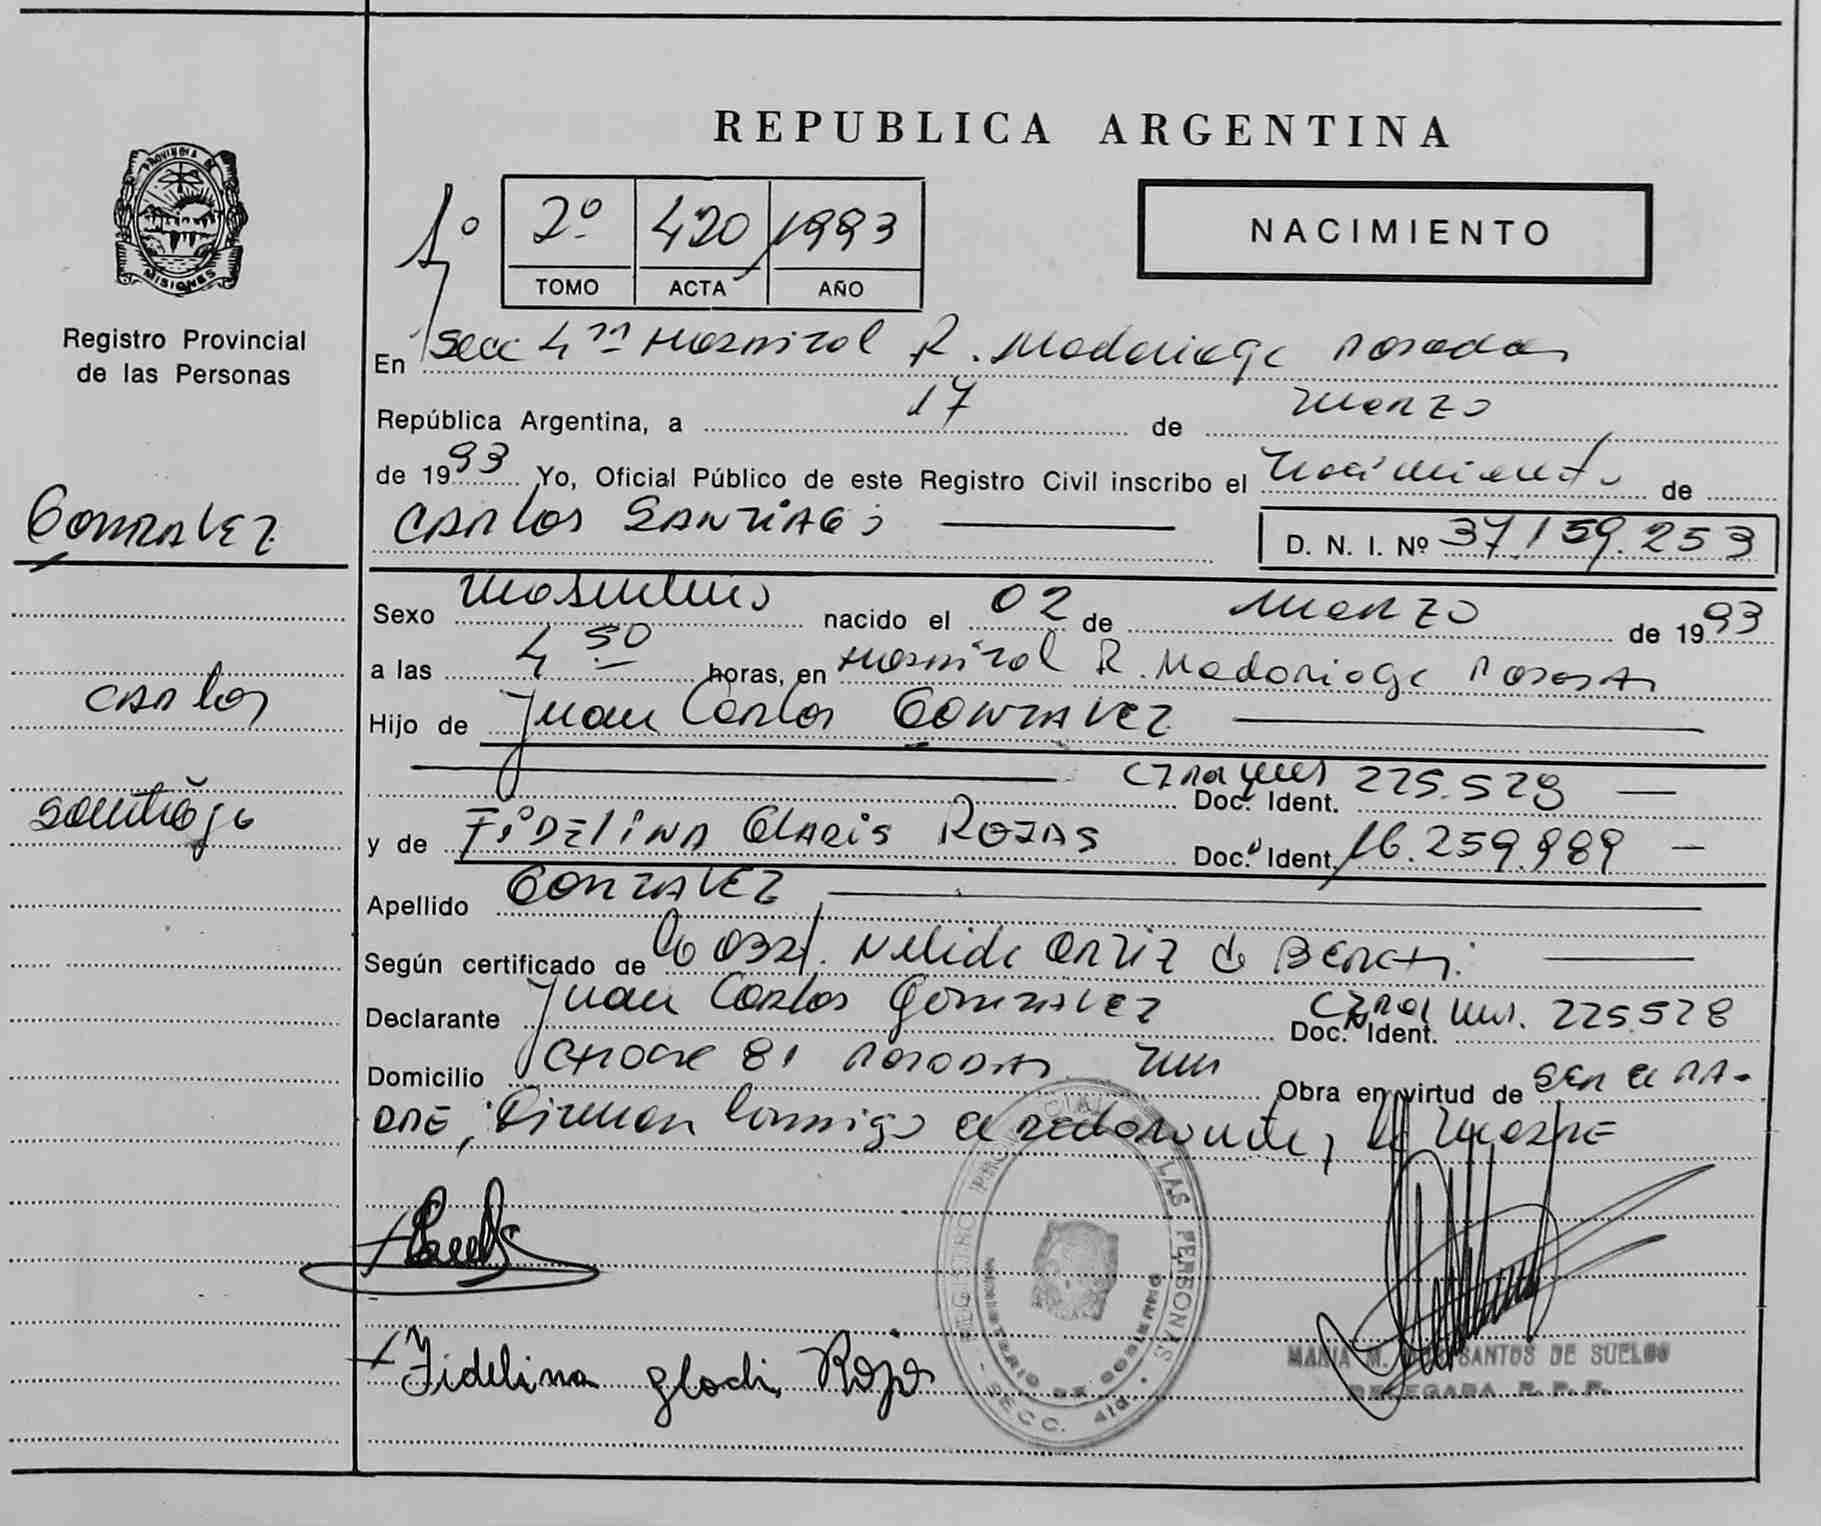 REPUBLICA ARGENTINA
PROVINCIA DE
MISIONES
Registro Provincial
de las Personas
1º
2º 420 1993
TOMO ACTA AÑO
NACIMIENTO
En Secc 4ta Hospital R. Madariaga Posadas
República Argentina, a 17 de Marzo
de 1993 Yo, Oficial Público de este Registro Civil inscribo el Nacimiento de
GONZALEZ
CARLOS SANTIAGO
D. N. I. Nº 37.159.253
Sexo Masculino nacido el 02 de Marzo de 1993
a las 4 30 horas, en Hospital R. Madariaga Posadas
Carlos
Hijo de Juan Carlos GONZALEZ
Doc. Ident. 225.528
Santiago
y de FIDELINA Rojas Doc. Ident. 16.259.989
Apellido GONZALEZ
Según certificado de la Obst. Nelida Ortiz de
Declarante Juan Carlos Gonzalez Doc. Ident. 225.528
Domicilio 81 Posadas Obra en virtud de ser el PA-
DRE, Firman conmigo el declarante, la MADRE
Fidelina Rojas
REGISTRO PROVINCIAL DE LAS PERSONAS
MINISTERIO DE GOBIERNO
SECC. 4ta.
MARIA M. SANTOS DE SUELOS
DELEGADA R. P. P.